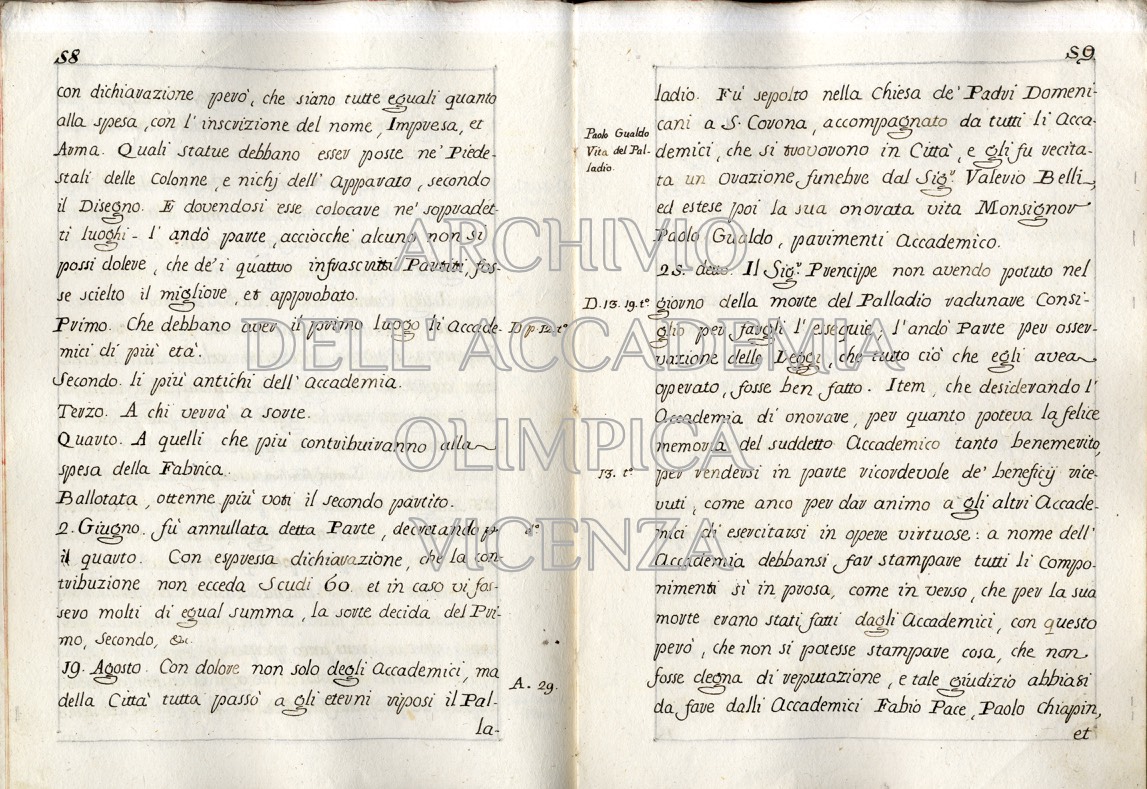 58
con dichiarazione però, che siano tutte eguali quanto
alla spesa, con l' inscrizione del nome, Impresa, et
Arma. Quali statue debbano esser poste ne' Piede-
stali delle Colonne, e nichj dell' Apparato, secondo
il Disegno. E dovendosi esse colocare ne' sopradet-
ti luoghi - l' andò parte, acciocchè alcuno non si
possi dolere, che de' i quattro infrascritti Partiti, fos-
se scielto il migliore, et approbato.
Primo. Che debbano aver il primo luogo li Accade-
mici di più età.
Secondo. li più antichi dell' accademia.
Terzo. A chi verrà a sorte.
Quarto. A quelli che più contribuiranno alla
spesa della Fabrica.
Ballotata, ottenne più voti il secondo partito.
2. Giugno. fù annullata detta Parte, decretando p.
il quarto. Con espressa dichiarazione, che la con-
tribuzione non ecceda Scudi 60. et in caso vi fos-
sero molti di egual summa, la sorte decida del Pri-
mo, Secondo, &c.
19. Agosto. Con dolore non solo degli Accademici, ma
della Città tutta passò a gli eterni riposi il Pal-
la-
D. p. 12. t.º
d.º
A. 29.
59
Paolo Gualdo
Vita del Pal-
ladio.
D. 13. 19. t.º
13. t.º
ladio. Fù sepolto nella Chiesa de' Padri Domeni-
cani a S. Corona, accompagnato da tutti li Acca-
demici, che si trovorono in Città, e gli fu recita-
ta un Orazione funebre dal Sig.r Valerio Belli,
ed estese poi la sua onorata vita Monsignor
Paolo Gualdo, parimenti Accademico.
25. detto. Il Sig.r Prencipe non avendo potuto nel
giorno della morte del Palladio radunare Consi-
glio per fargli l' esequie, l' andò Parte per osser-
vazione delle Leggi, che tutto ciò che egli avea
operato, fosse ben fatto. Item, che desiderando l'
Accademia di onorare, per quanto poteva la felice
memoria del suddetto Accademico tanto benemerito,
per rendersi in parte ricordevole de' beneficij rice-
vuti, come anco per dar animo a gli altri Accade-
mici di esercitarsi in opere virtuose: a nome dell'
Accademia debbansi far stampare tutti li Compo-
nimenti sì in prosa, come in verso, che per la sua
morte erano stati fatti dagli Accademici, con questo
però, che non si potesse stampare cosa, che non
fosse degna di reputazione, e tale giudizio abbiasi
da fare dalli Accademici Fabio Pace, Paolo Chiapin,
et
ARCHIVIO
DELL'ACCADEMIA
OLIMPICA
VICENZA